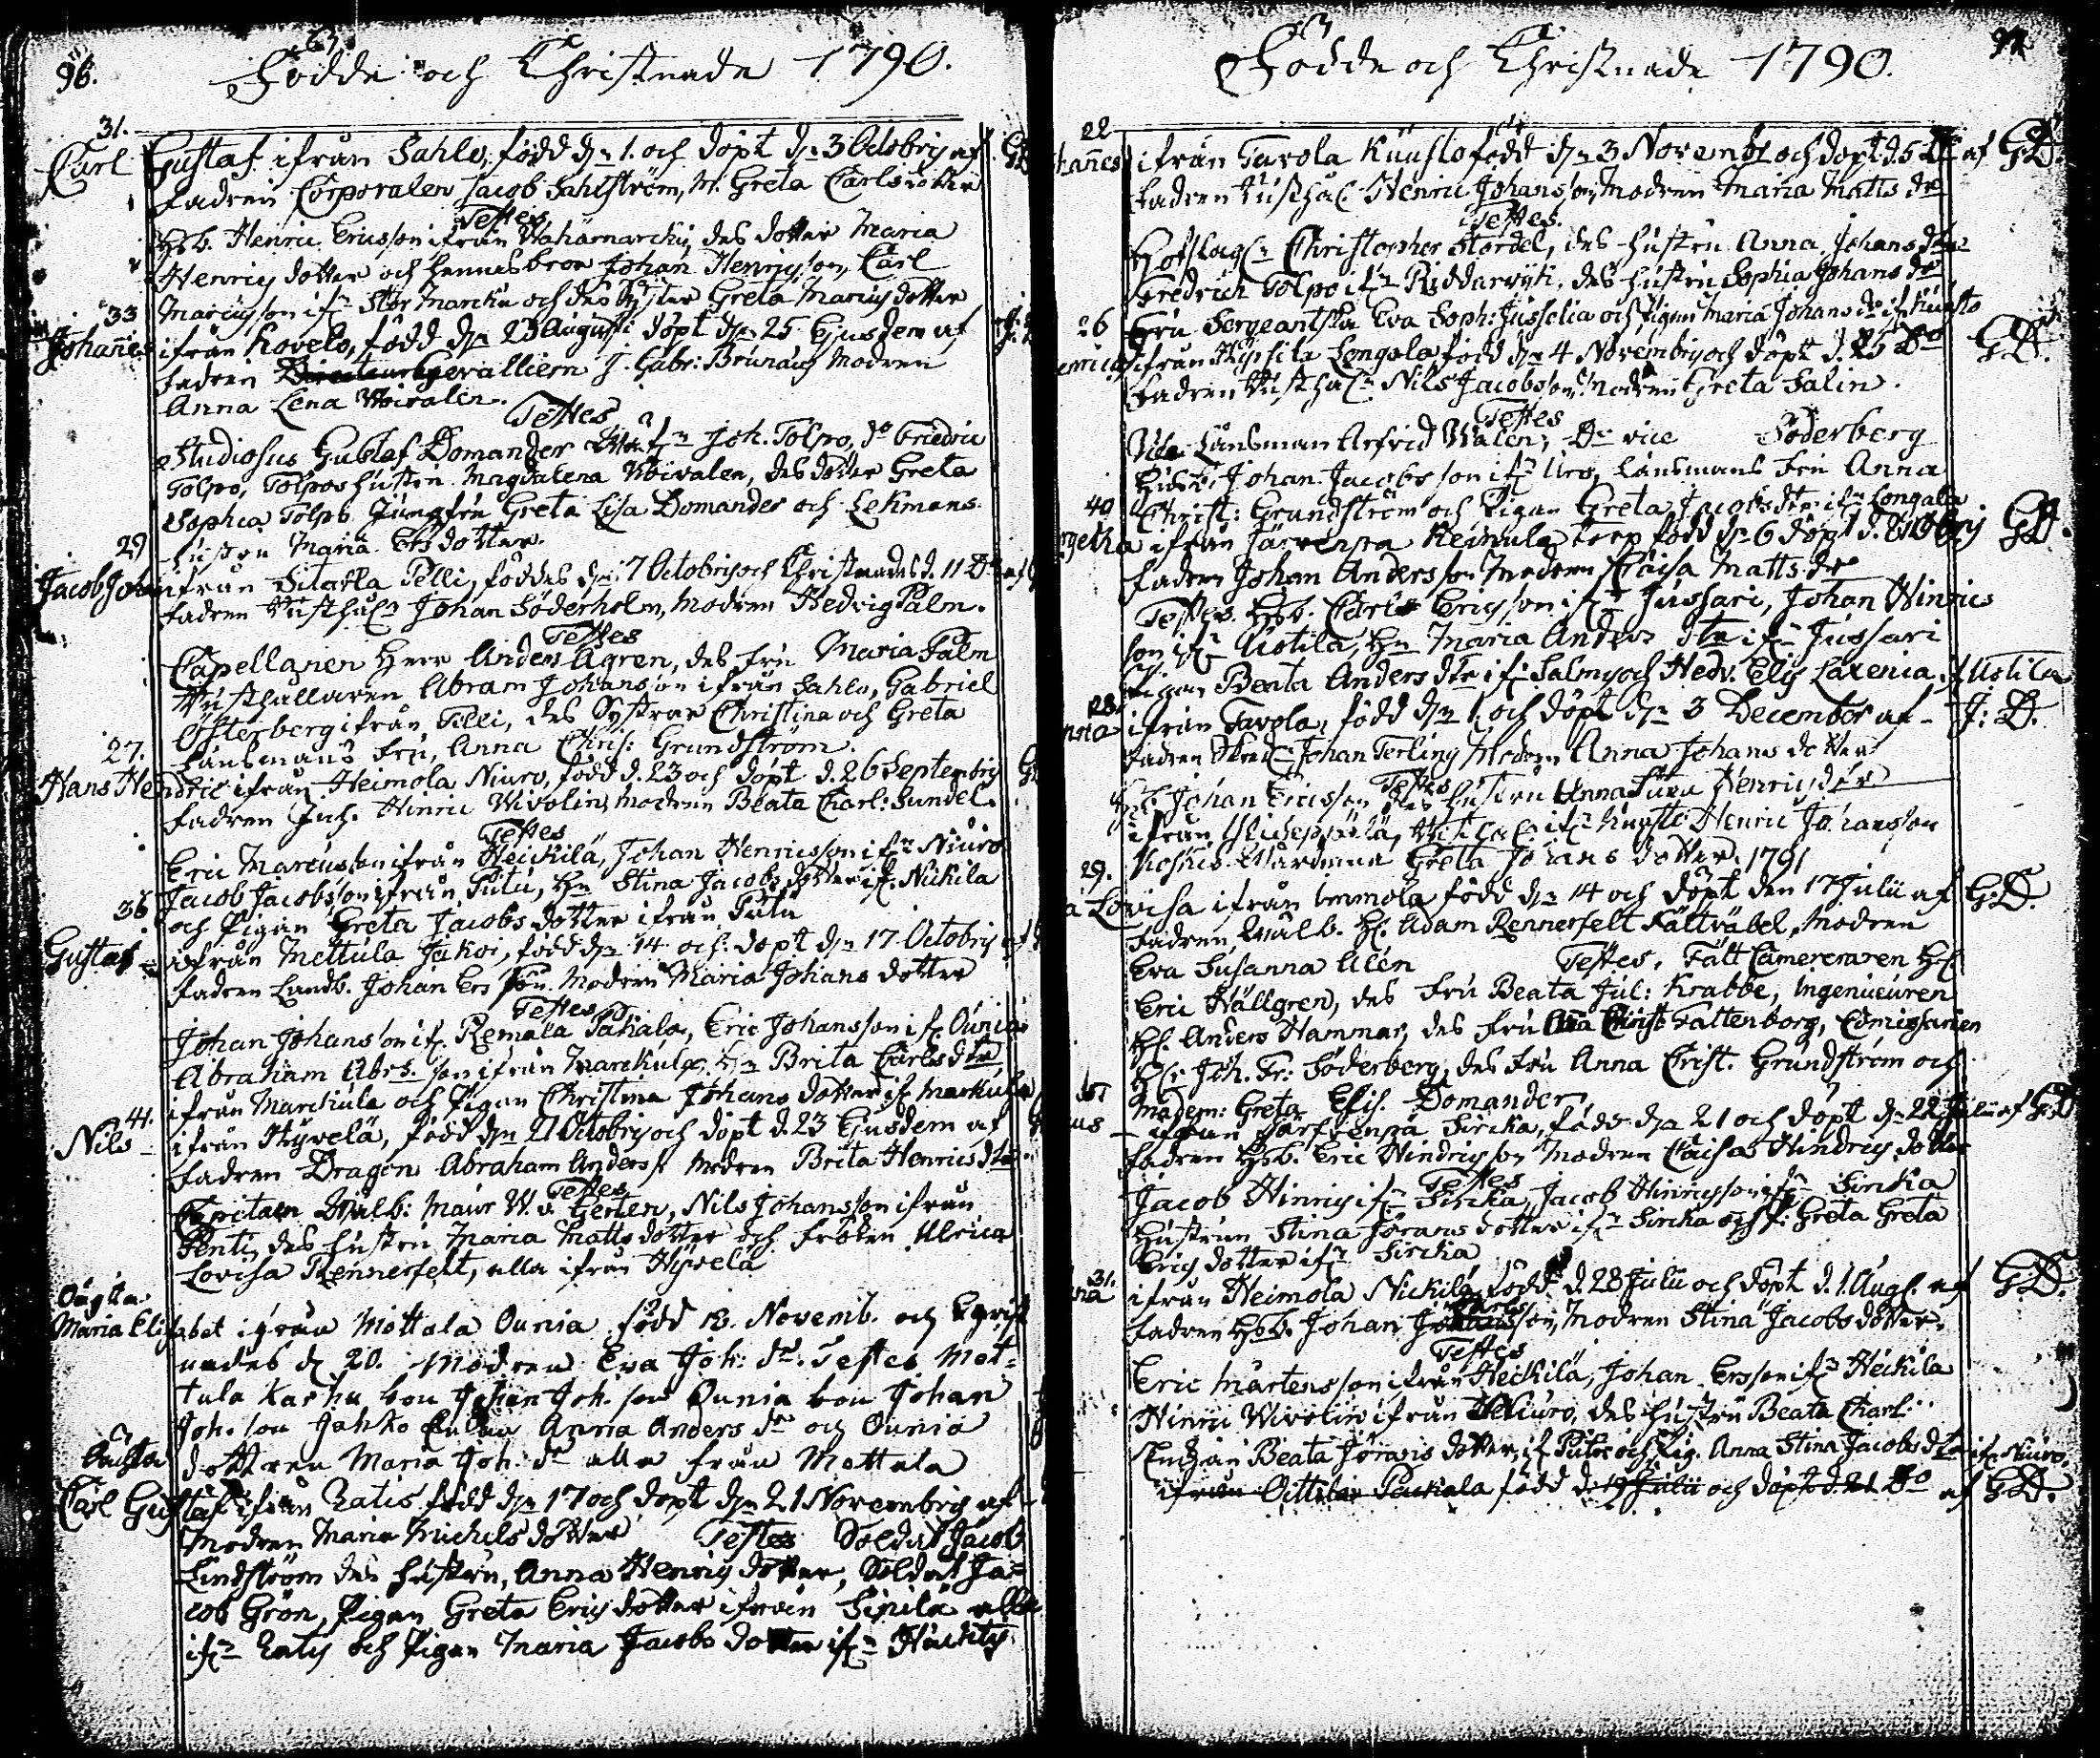 96.
Födde och Christnade 1790.
31.
Carl Gustaf ifrån Sahlo, född dn 1. och döpt dn 3 Octobris af
Fadren Corporalen Jacob Sahlström, M. Greta Carlsdotter
Testes
Hsb. Henric Ericsson ifrån des dotter Maria
Henrics dotter och hennes bror Johan Henricsson, Carl
Marcusson ifn Stor Marcku och des Syster Greta Marcus dotter
33
Johannes ifrån Kovelo, född dn 23 Augusti döpt dn 25 Ejusdem af
Fadren Gevalliern J. Gabr: Brunaus Modren
Anna Lena Woivalin.
Testes
Studiosus Gustaf Domander Joh. Tolpo, do Friedric
Tolpo, Tolpos hustru Magdalena Woivalen, des dotter Greta
Sophia Tolpo Jungfru Greta Lisa Domander och Lekmans
hustru Maria Ersdotter.
29
Jacob Johan ifrån Sitarla Pelli, föddes dn 7 Octobris och Christnades d. 11 Do af
Fadren Rusthåln Johan Söderholm, Modren Hedvig Palm.
Testes
Capellanen Herr Anders Agren, des Fru Maria Palm
Rusthållaren Abram Johansson ifrån Sahlo, Gabriel
Österberg ifrån Pilli, des Systrar Christina och Greta
Länsmans Fru, Anna Chris: Grundström.
27.
Hans Hendric ifrån Heimola Niuro, född d. 23 och döpt d. 26 Septembris
Fadren Inh. Hinric Wivolin, Modren Beata Charl: Sundel.
Testes
Eric Marcusson ifrån Heickilä, Johan Henricsson ifn Niuro
Jacob Jacobsson ifrån Putu, Hu Stina Jacobs dotter if. Nickila
och Pigan Greta Jacobs dotter ifrån Putu
36
Gustaf ifrån Mettula Jakoi, född dn 14 och döpt dn 17 Octobris af
Fadren Landb. Johan Ersson Modren Maria Johans dotter
Testes
Johan Johansson if. Remala Pahalo, Eric Johansson if. Ounia
Abraham Abrs. son ifrån Marckula, Hu Brita Carls dtr
ifrån Marckula och Pigan Christina Johans dotter if. Markula
41.
Nils ifrån Hyvelä, född dn 21 Octobris och döpt d. 23 Ejusdem af
Fadren Dragon Abraham Anderss. Modren Brita Henrics dtr
Testes
Capitain Wälb: Maur W. v. Gerten, Nils Johansson ifrån
Penti, des hustru Maria Matts dotter och Fröken Ulrica
Lovisa Rennerfelt, alla ifrån Hyvelä
Oägta
Maria Elisabet ifrån Mottula Ounia född 13. Novemb. och Christ
nades d 20. Modren Eva Joh: dr. Testes Mot=
tula Karhu bon Johan Joh. son Ounia bon Johan
Joh. son Jahko Enkan Anna Anders dr och Ounia
dottren Maria Joh. dr alla från Mottula
Oächta
Carl Gustaf ifrån Ratis född dn 17 och döpt dn 21 Novembris af
Modren Maria Michels dotter Testes Soldat Jacob
Lindström des hustru, Anna Henrics dotter, Soldat Ja=
cob Grön, Pigan Greta Erics dotter ifrån Sipilä alla
ifn Ratis och Pigan Maria Jacobs dotter ifn

97
Födde och Christnade 1790.
22
hannes ifrån Tavola Kuusto född dn 3 Novemb och döpt d. 5 Do af GD.
Fadren Rusthål. Henric Johansson, Modren Maria Matts dr
Testes.
Hofslagn Christopher Stördel, des hustru Anna Johans dtr
Fredrich Tolpo ifn Riddarwijk, des hustru Sophia Johans dr
Fru Sergeantska Eva Soph: Jusselia och Pigan Maria Johans dr if. Kuusto
26
enricus ifrån Rypsilä Longola född dn 4 Novembris och döpt d. 25 Do GD.
Fadren Rusthåln Nils Jacobsson, Modren Greta Salin.
Testes
Vice Länsman Arfvid Walen, Do vice Söderberg
Husb. Johan Jacobsson ifn Uro, Länsmans Fru Anna
Christ: Grundström och Pigan Greta Jacobs dtr ifn Longatta
40
rgetha ifrån Järvenpa Keimula torp född dn 6 döpt d. 8 GD.
Fadren Johan Andersson Modren Caisa Matts dr
Testes. Hsb. Carl Ericsson ifn Jussari, Johan Hinrics
son ifn Uotila, Hu Maria Anders dtr ifn Jussari
Pigan Beata Anders dtr ifn Salmi och Hedv. Elis Laxenia if Uotila
28.
nna ifrån Tavola, född dn 1. och döpt dn 3 December af J: D.
Fadren Johan Terling Modren Anna Johans dotter
Testes
Johan Ericsson des hustru Anna Henrics dtr
ifrån Rusthål. ifn Kuusto Henric Johansson
Greta Johans dotter. 1791
29.
a Lovisa ifrån Immola född dn 14 och döpt den 17 Julii af G.D.
Fadren Wälb. H. Adam Rennerfelt Fältväbel, Modren
Eva Susanna Alén Testes, Fält Camereraren H.
Eric Hällgren, des Fru Beata Jul: Krabbe, Ingenieuren
H. Anders Hammar, des Fru Christ Fattenborg, Comissarien
H. Joh. Fr: Söderberg, des Fru Anna Christ. Grundström och
Madem: Greta Elis. Domander
us ifrån Järfvenpä Sircka, född dn 21 och döpt dn 22 Julii af GD
Fadren Hsb. Eric Hindricsson Modren Caisa Hindrics dotter
Testes
Jacob Hinrics ifn Sircka, Jacob Hinricsson ifn Sircka
Hustrun Stina Jörans dotter ifn Sircka och P. Greta Greta
Erics dotter ifn Sircka
31.
na ifrån Heimola Nickilä, född d. 28 Julii och döpt d. 1. Aug. af GD.
Fadren Hsb. Johan son, Modren Stina Jacobs dotter.
Testes
Eric Mårtensson ifrån Heickilä, Johan Ersson ifn Heickila
Hinric Wivolin ifrån Niuro, des hustru Beata Charl.
Enckan Beata Jörans dotter, if Putu och Pig. Anna Stina Jacobs dtr if. Niuro.
ifrån Pentala född d. 19 Julii och döpt d. 21 Do af GD.